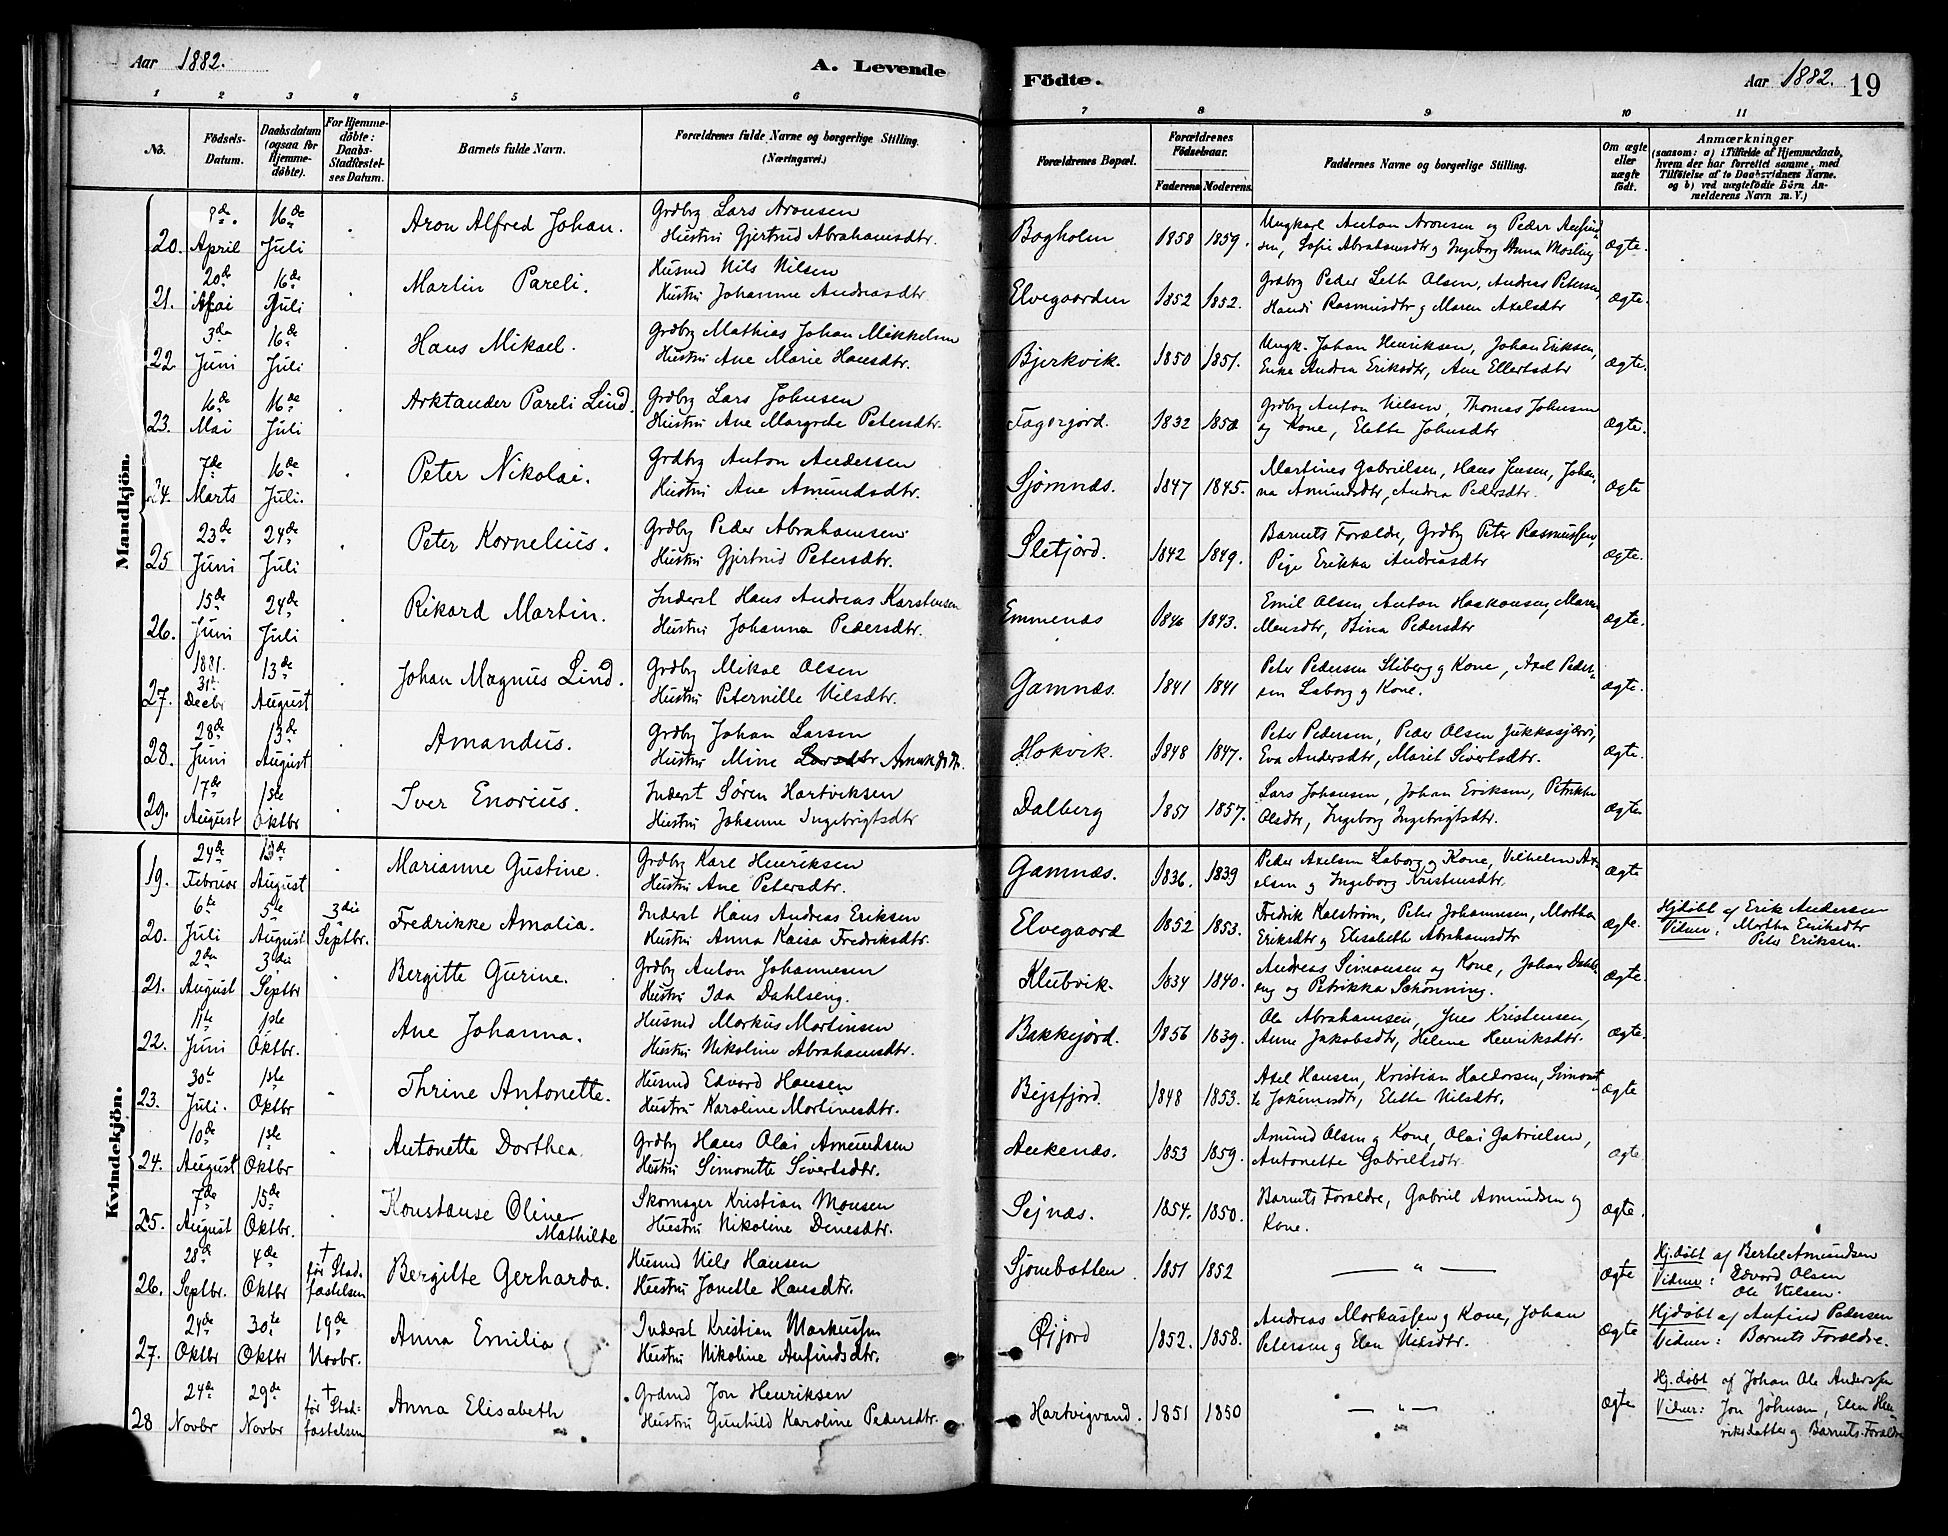 Aar 1882.
A. Levende
Fødte.
Aar 1882.
19
1 2 3 4 5 6 7 8 9 10 11
No.
Fødsels-Datum.
Daabsdatum (ogsaa for Hjemme-døbte).
For Hjemme-døbte: Daabs-Stadfæstel-ses Datum.
Barnets fulde Navn.
Forældrenes fulde Navne og borgerlige Stilling.
(Næringsvei.)
Forældrenes Bopæl.
Forældrenes Fødselsaar.
Faderens Moderens
Faddernes Navne og borgerlige Stilling.
Om ægte eller uægte født.
Anmærkninger
(saasom: a) i Tilfælde af Hjemmedaab,
hvem der har forrettet samme, med
Tilføielse af to Daabsvidners Navne.
og b) ved uægtefødte Børn An-
melderens Navn m. V.)
Mandkjøn.
20. April 16de Juli Aron Alfred Johan. Grdbr Lars Aronsen
Hustru Gjertrud Abrahamsdtr. Bogholm 1858 1859. Ungkarl Anton Aronsen og Peder
sen, Sofie Abrahamsdtr og Ingeborg Anna Mosling ægte.
21. 20de Mai 16de Juli Martin Pareli. Husmd Nils Nilsen
Hustru Johanne Andreasdtr. Elvegaarden 1852 1852. Grdbr Peder Leth Olsen, Andreas Petersen,
Rasmusdtr og Maren Axelsdtr ægte.
22 3die Juni 16de Juli Hans Mikael. Grdbr Mathias Johan Mikkelsen
Hustru Ane Marie Hansdtr. Bjerkvik. 1850 1851. Ungk. Johan Henriksen, Johan Eriksen,
Andrea Eriksdtr, Ane Ellertsdtr ægte.
23. 16de Mai 16de Juli Arktander Pareli Lind. Grdbr Lars Johnsen
Hustru Ane Margrete Petersdtr. Fagerjord. 1832 1850 Grdbr Anton Nilsen, Thomas Johnsen
og Kone, Elette Johnsdtr ægte.
24. 7de Marts 16de Juli. Peter Nikolai. Grdbr Anton Andersen
Hustru Ane Amundsdtr. Sjømnæs. 1847 1845. Martines Gabrielsen, Hans Jensen, Johan-
na Amundsdtr, Andrea Pedersdtr. ægte
25 23de Juni 24de Juli Peter Kornelius. Grdbr Peder Abrahamsen
Hustru Gjertrud Petersdtr. Sletjord. 1842 1849. Barnets Forældre, Grdbr Peter Rasmussen,
Pige Erikka Andreasdtr ægte.
26. 15de Juni 24de Juli Rikard Martin. Inderst Hans Andreas Karstensen
Hustru Johanna Pedersdtr. Emmenæs 1846 1843. Emil Olsen, Anton Haakonsen, Maren
Monsdtr, Bina Pedersdtr ægte.
27. 1881. 31te Decbr 13de August Johan Magnus Lind. Grdbr Mikal Olsen
Hustru Peternille Nilsdtr. Gamnæs. 1841 1841 Peter Pedersen Stiberg og Kone, Axel Peder-
sen Laborg og Kone. ægte.
28. 28de Juni 13de August Amandus. Grdbr Johan Larsen
Hustru Mine Larsdtr Amundsdtr. Hokvik. 1848 1847. Peter Pedersen, Peder Olsen Jukkasjærvi,
Eva Andersdtr, Marit Sivertsdtr. ægte.
29. 17de August 1ste Oktbr Iver Enorius. Inderst Søren Hartviksen
Hustru Johanne Ingebrigtsdtr Dalberg 1851 1857. Lars Johansen, Johan Eriksen, Petrikke
Olsdtr, Ingeborg Ingebrigtsdtr. ægte
Kvindekjøn.
19. 24de Februar 13de August Marianne Gustine. Grdbr Karl Henriksen
Hustru Ane Petersdtr. Gamnæs. 1836. 1839 Peder Axelsen Laborg og Kone, Vilhelm Ax-
elsen og Ingeborg Kristensdtr. ægte
20. 6te Juli 5te August 3die Septbr. Fredrikke Amalia. Inderst Hans Andreas Eriksen
Hustru Anna Kaisa Fredriksdtr. Elvegaard 1852 1853. Fredrik Kalstrøm, Peter Johannesen, Martha
Eriksdtr og Elisabeth Abrahamsdtr ægte. Hjdøbt af Erik Andersen
Vidner: Martha Eriksdtr
Peter Eriksen.
21. 2den August 3die Septbr Bergitte Gurine. Grdbr Anton Johannesen
Hustru Ida Dahlseng. Klubvik. 1834 1840. Andreas Simonsen og Kone, Johan Dahls-
eng og Petrikka Schønning. ægte.
22. 11te Juni 1ste Oktbr. Ane Johanna. Husmd Markus Martinsen
Hustru Nikoline Abrahamsdtr. Bakkejord. 1856 1839. Ole Abrahamsen, Jens Kristensen,
Anne Jakobsdtr, Helene Henriksdtr. ægte.
23. 30te Juli. 1ste Oktbr Thrine Antonette. Husmd Edvard Hansen
Hustru Karoline Mortinesdtr. Bejsfjord. 1848 1853. Axel Hansen, Kristian Haldorsen, Simonet-
te Jokimsdtr, Elette Nilsdtr. ægte
24. 10de August 1ste Oktbr Antonette Dorthea. Grdbr Hans Olai Amundsen
Hustru Simonette Sivertsdtr. Ankenæs. 1853 1859. Amund Olsen og Kone, Olai Gabrielsen,
Antonette Gabrielsdtr. ægte
25. 7de August 15de Oktbr. Konstanse Oline Mathilde Skomager Kristian Monsen
Hustru Nikoline Denesdtr. Sejnæs. 1854. 1850. Barnets Forældre, Gabriel Amundsen og
Kone. ægte.
26. 28de Septbr. 4de Oktbr † før Stad-fæstelsen Bergitte Gerharda. Husmd Nils Hansen
Hustru Janette Hansdtr. Sjømbotten. 1851 1852 — " — ægte Hj.døbt af Bertel Amundsen
Vidner: Edvard Olsen
Ole Nilsen.
27. 24de Oktbr 30te Oktbr 19de Novbr. Anna Emilia Inderst Kristian Markussen
Hustru Nikoline Anfindsdtr. Øijord 1852. 1858. Andreas Markussen og Kone, Johan
Petersen og Elen Nilsdtr. ægte Hjdøbt af Anfind Pedersen
Vidner: Barnets Forældre.
28 24de Novbr 29de Novbr † før Stad-fæstelsen Anna Elisabeth Grdmd Jon Henriksen
Hustru Gunhild Karoline Pedersdtr. Hartvigvand. 1851 1850 — " — ægte Hj.døbt af Johan Ole Anderssen
Vidner: Jon Johnsen, Elen Hen-
riksdatter og Barnets Forældre